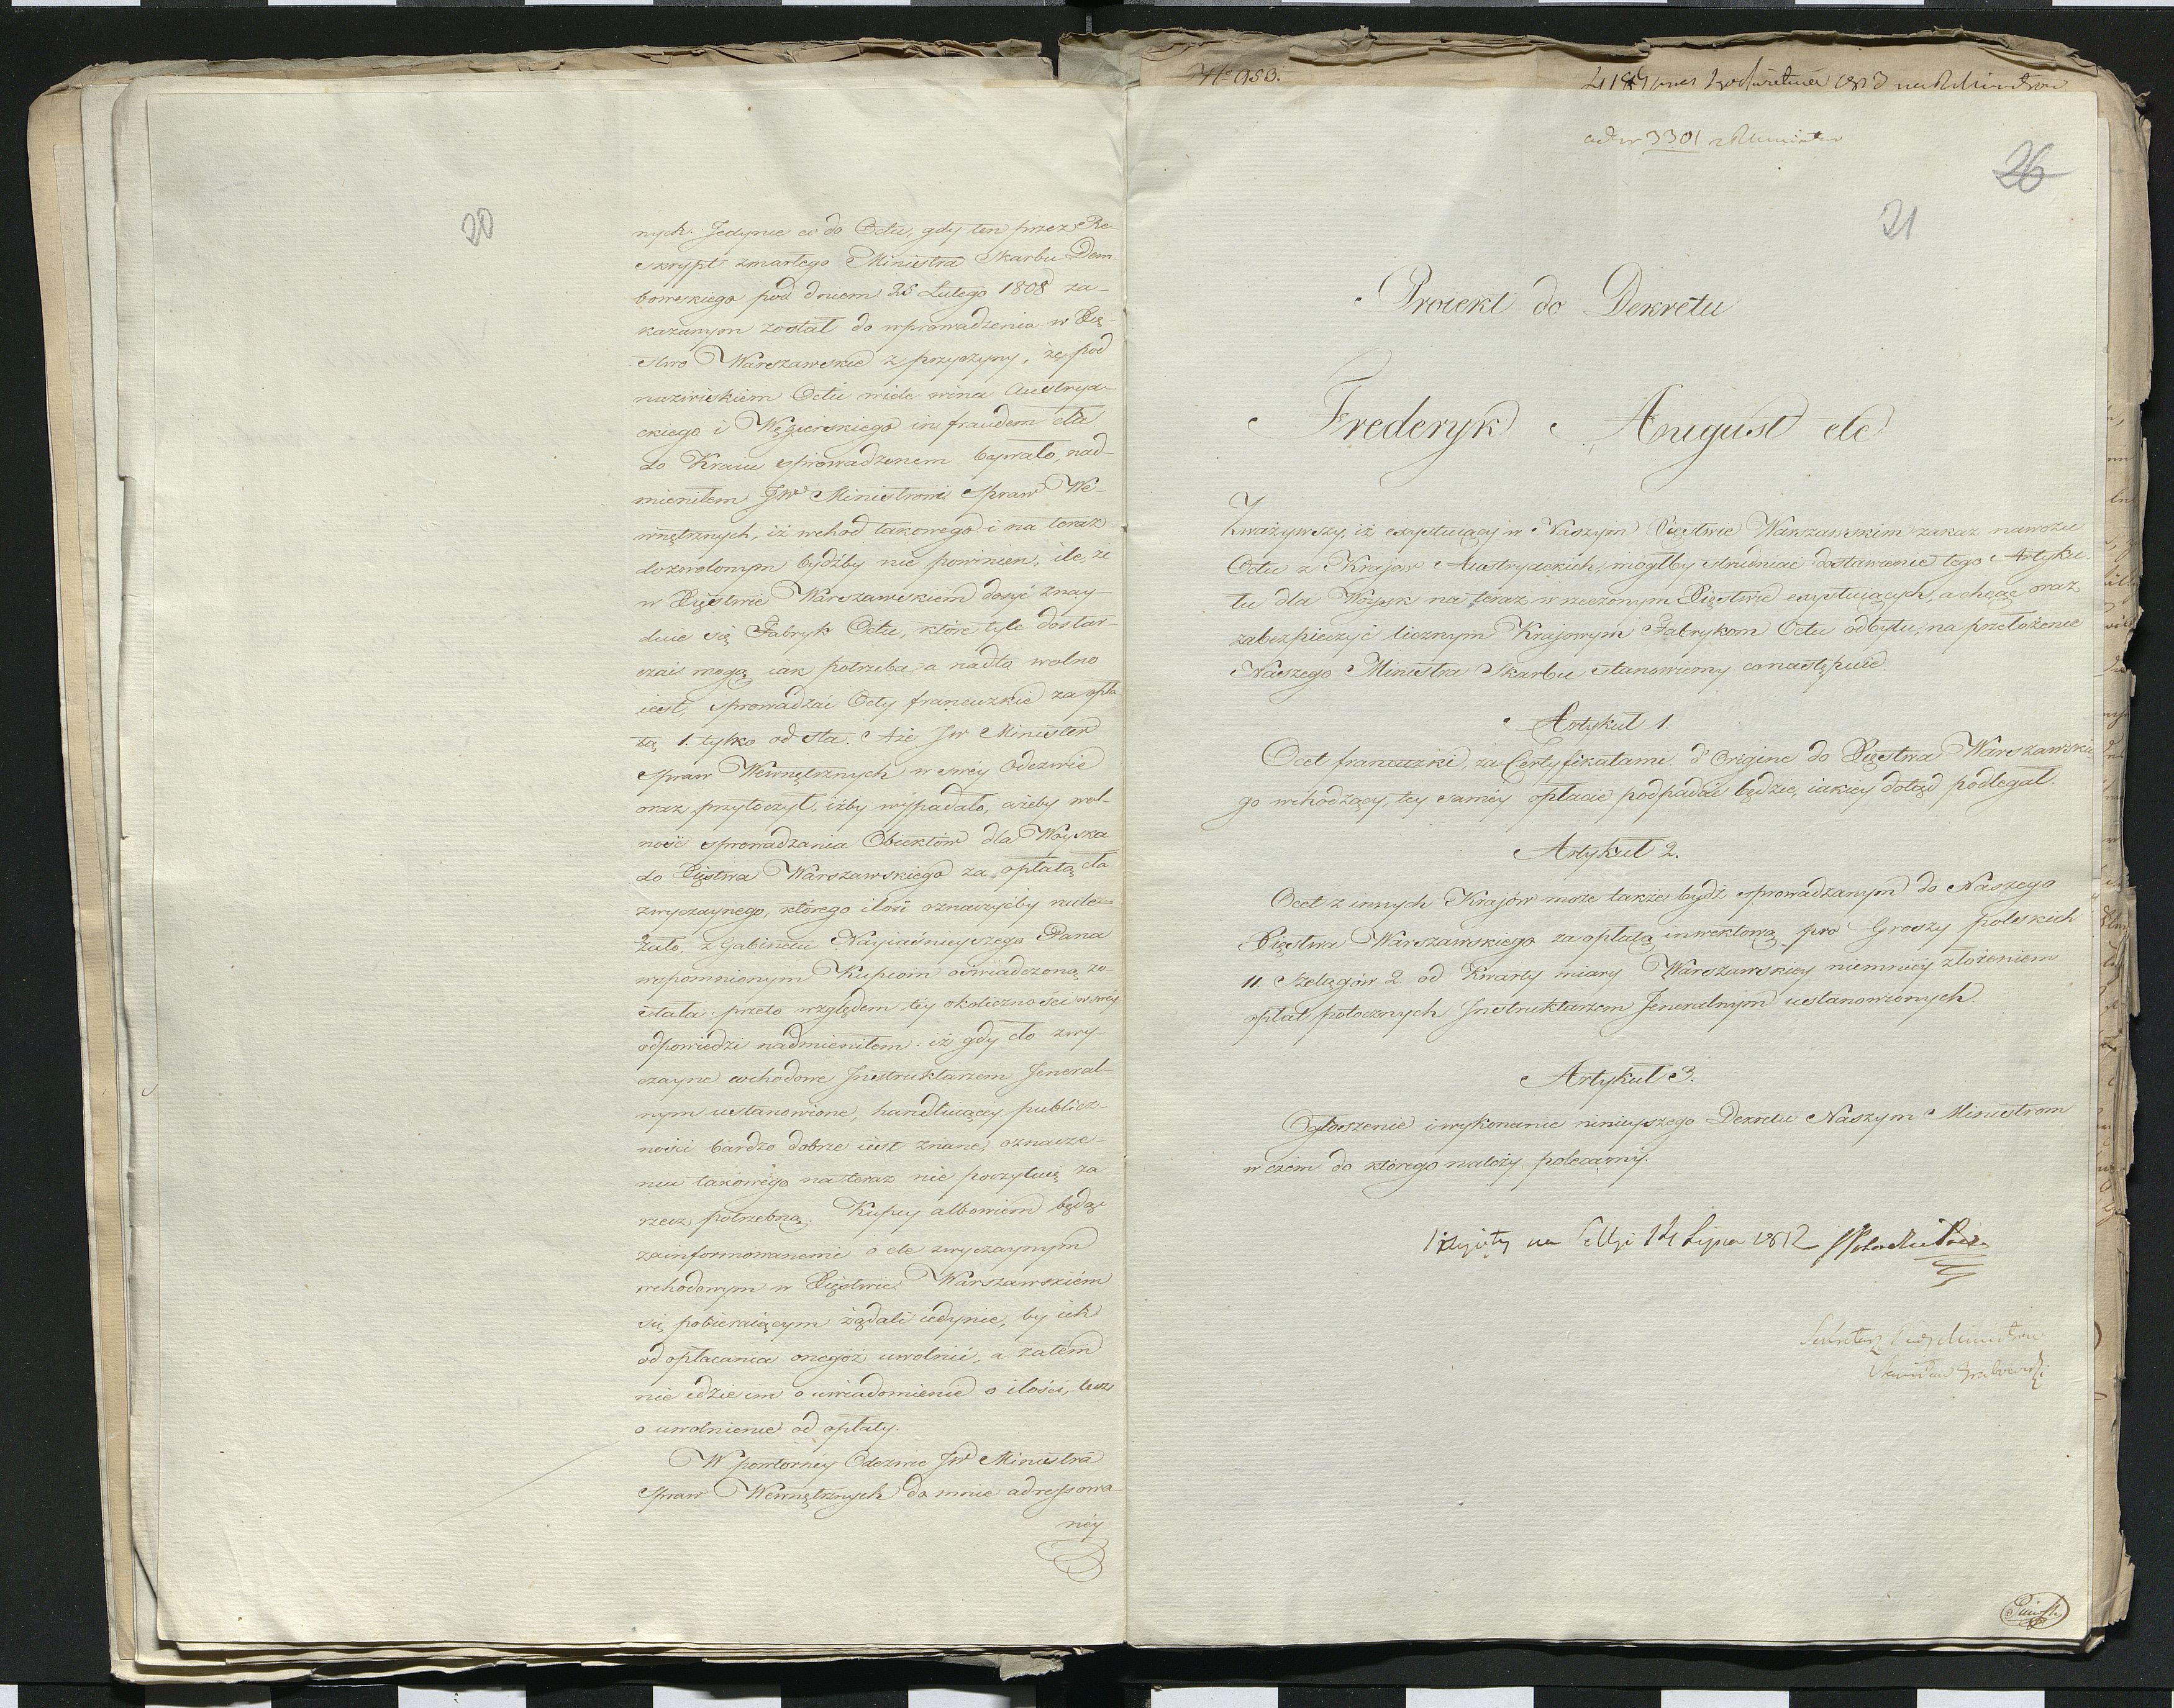 20
nych. Jedynie co do Octu, gdy ten przez Re-
skrypt zmarłego Ministra Skarbu Dem-
bowskiego pod dniem 25 Lutego 1808 za-
kazanym został do wprowadzenia w Xię-
stwo Warszawskie z przyczyny, że pod
nazwiskiem Octu wiele wina Austrya-
ckiego i Węgierskiego in fraudem cła
do Kraiu sprowadzonem bywało, nad-
mieniłem JW Ministrowi Spraw We-
wnętrznych, iż wchod takowego i na teraz
dozwolonym bydźby nie powinien, ile, że
w Xięstwie Warszawskiem dosyć znay-
duie się Fabryk Octu, które tyle dostar-
czać mogą iak potrzeba, a nadto wolno
iest, sprowadzać Octy francuzkie za opła-
tą 1. tylko od sta. Aże JW Minister
Spraw Wewnętrznych w swéy Odezwie
oraz przytoczył, iżby wypadało, ażeby wol-
ność sprowadzania Obiektów dla Woyska
do Xięstwa Warszawskiego za opłatą cła
zwyczaynego, którego ilość oznaczyćby nale-
żało, z Gabinetu Nayiaśnieyszego Pana
wspomnionym Kupcom oświadczoną zo-
stała: przeto względem téy okoliczności w swéy
odpowiedzi nadmieniłem: iż gdy cło zwy-
czayne wchodowe Instruktarzem Jeneral-
nym ustanowione, handluiącéy publicz-
ności bardzo dobrze iest znane, oznacze-
nia takowego na teraz nie poczytuię za
rzecz potrzebną. Kupcy albowiem będąc
zainformowanemi o cle zwyczaynym
wchodowym w Xięstwie Warszawskiém
się pobieraiącym żądali iedynie, by ich
od opłacania onegoż uwolnić, a zatém
nie idzie im o uwiadomienie o ilości, lecz
o uwolnienie od opłaty.
W powtórnéy Odezwie JW Ministra
Spraw Wewnętrznych do mnie adressowa-
néy
3301
26
21
Proiekt do Dekretu
Frederyk August etc
Zważywszy, iż exystuiący w Naszym Xięstwie Warszawskim zakaz nawozu
Octu z Krajów Austryackich, mógłby utrudniać dostawienie tego Artyku-
łu dla Woysk na teraz w rzeczonym Xięstwie exystuiących, a chcąc oraz
zabezpieczyć licznym Krajowym Fabrykom Octu odbytu, na przełożenie
Naszego Ministra Skarbu stanowiemy co następuie.
Artykuł 1.
Ocet francuzki, za Certyfikatami d'Origine do Xięstwa Warszawskie-
go wchodzący, téy saméy opłacie podpadać będzie, iakiéy dotąd podlegał.
Artykuł 2.
Ocet z innych Krajów może także bydź sprowadzanym do Naszego
Xięstwa Warszawskiego za opłatą inwektową pro Groszy polskich
11. Szelągów 2. od Kwarty miary Warszawskiey niemniéy złożeniem
opłat potocznych Instruktarzem Jeneralnym ustanowionych.
Artykuł 3.
Ogłoszenie i wykonanie ninieyszego Dekretu Naszym Ministrom
w czem do którego należy, polecamy.
Przyięty na Sessyi 14 Lipca 1812
Sekretarz Rady Ministrów